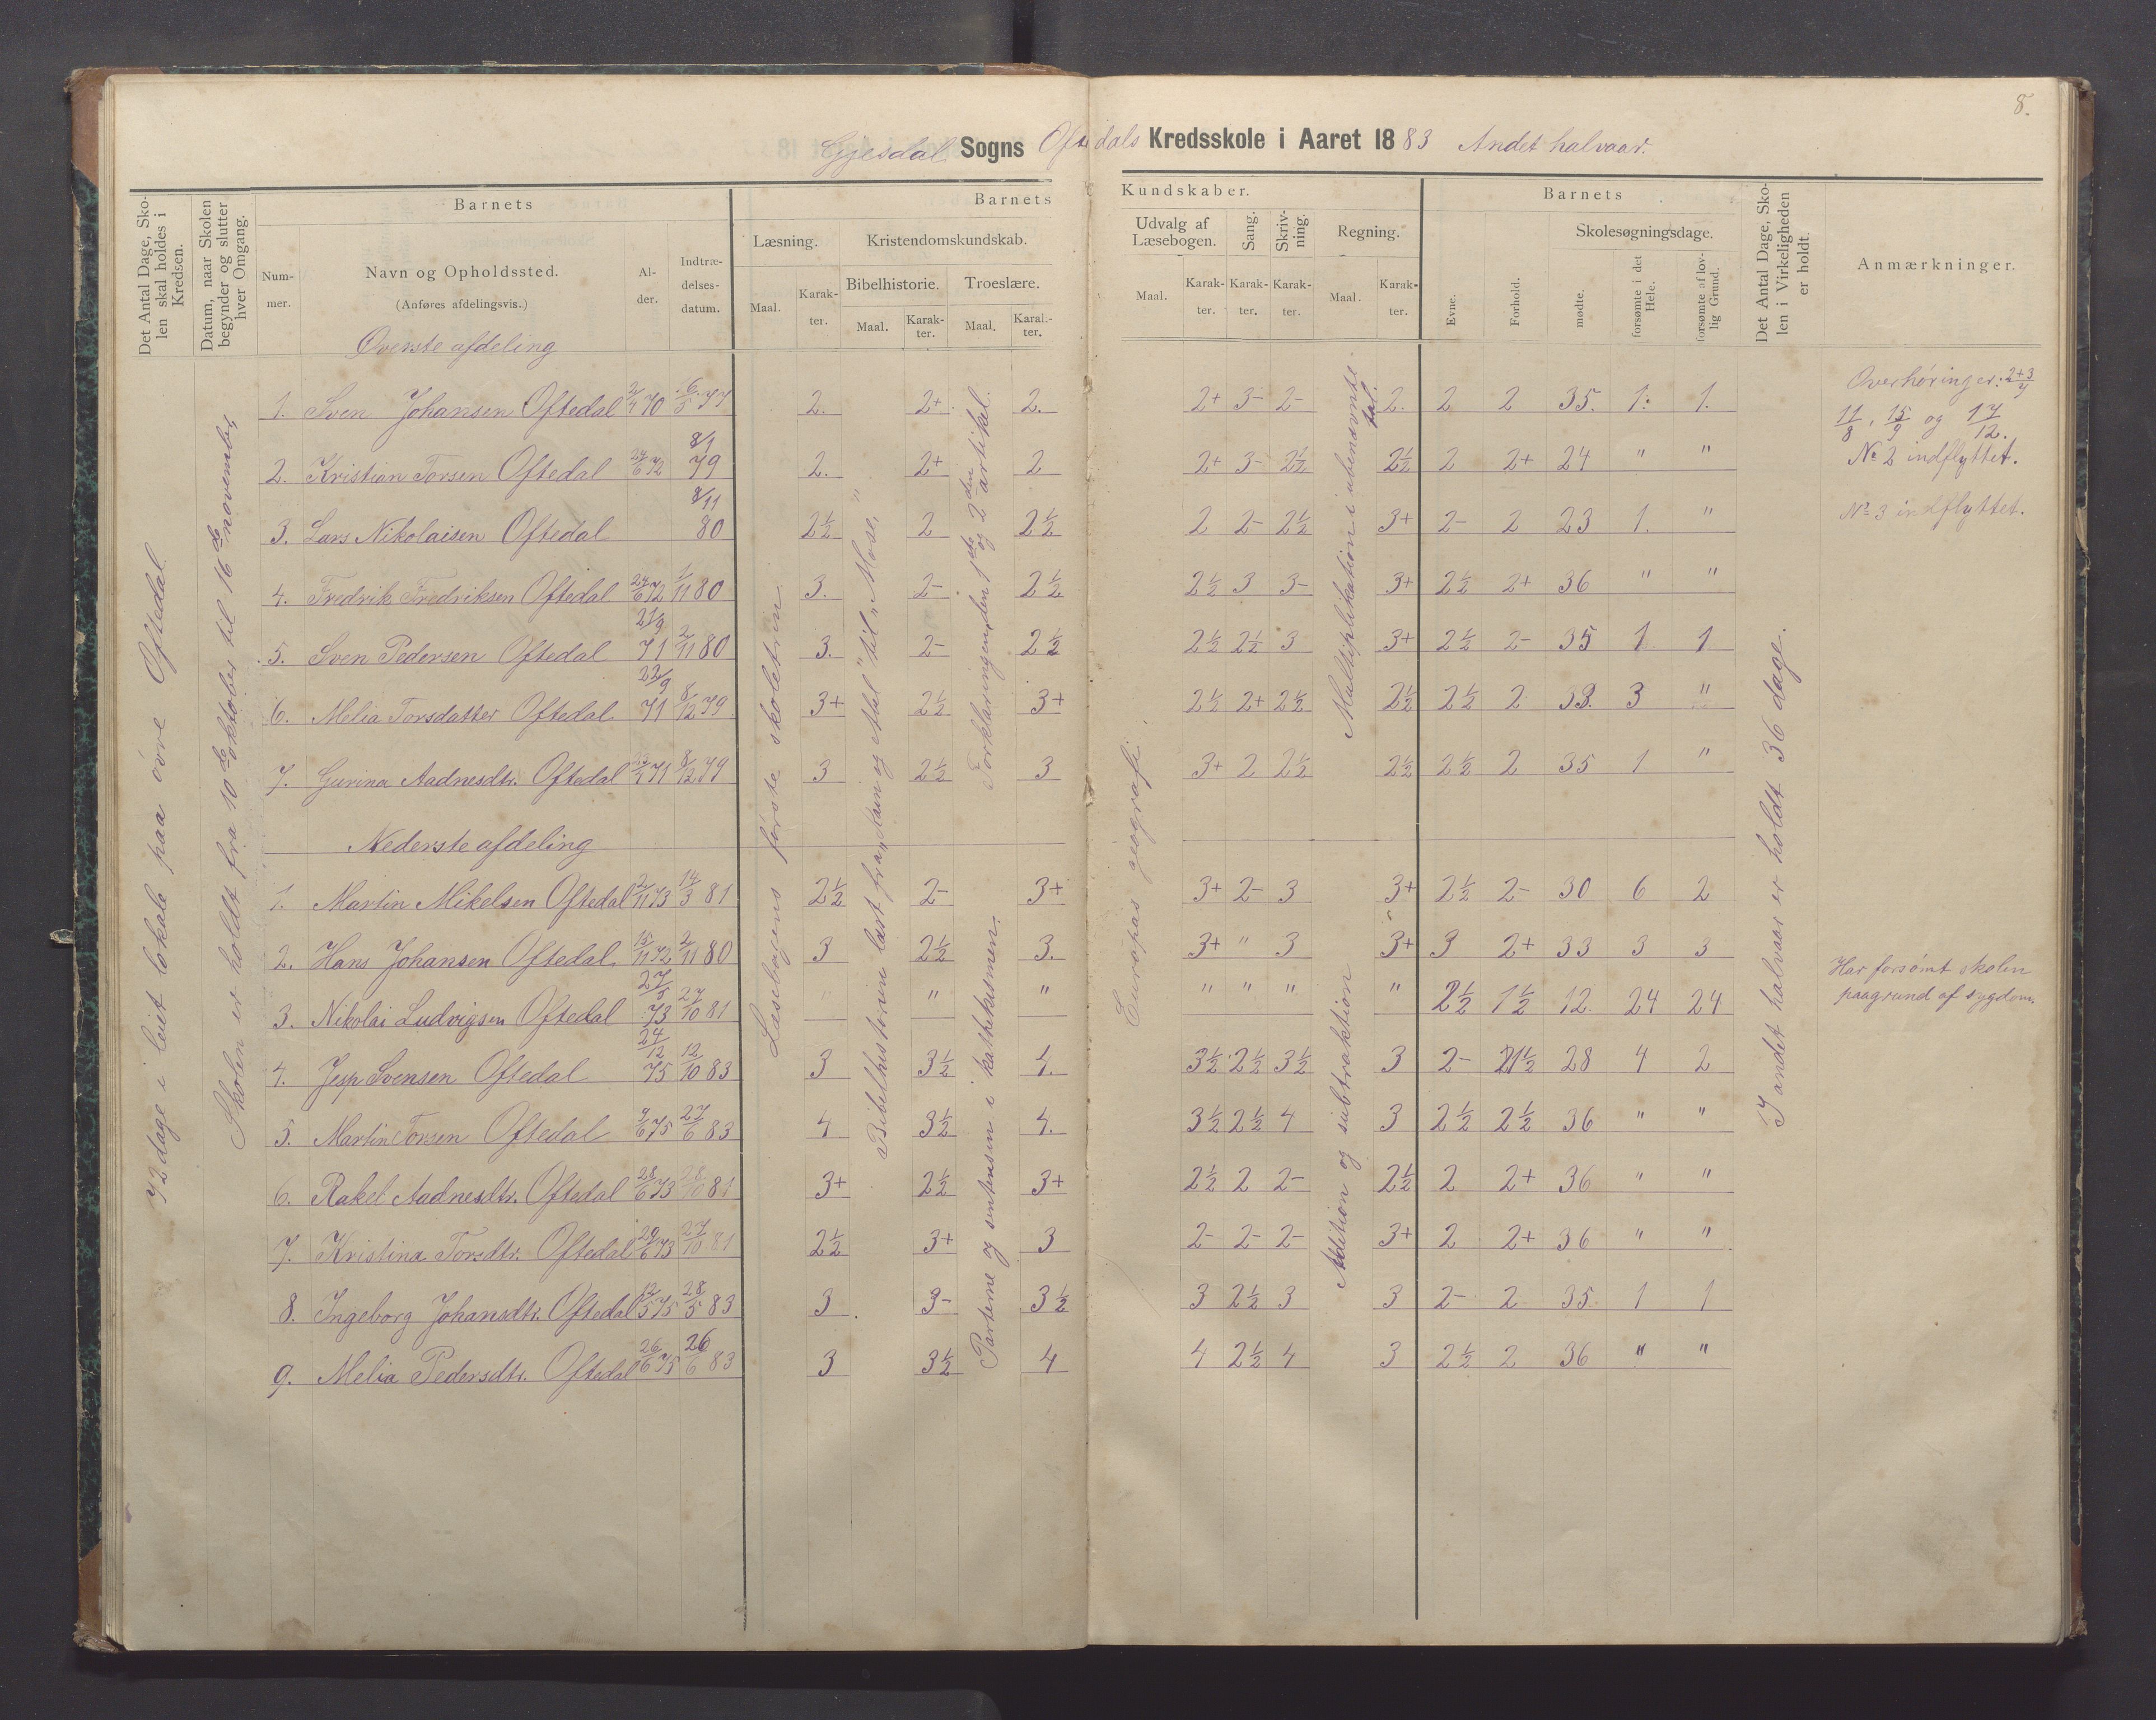 8.
Gjesdal Sogns Oftedals Kredsskole i Aaret 1883 Andet halvaar.
Det Antal Dage, Skolen skal holdes i Kredsen.
Datum, naar Skolen begynder og slutter hver Omgang.
Barnets
Nummer.
Navn og Opholdssted.
(Anføres afdelingsvis.)
Alder.
Indtrædelsesdatum.
Barnets Kundskaber.
Læsning.
Maal.
Karakter.
Kristendomskundskab.
Bibelhistorie.
Maal.
Karakter.
Troeslære.
Maal.
Karakter.
Udvalg af Læsebogen.
Maal.
Karakter.
Sang.
Karakter.
Skrivning.
Karakter.
Regning.
Maal.
Karakter.
Barnets
Evne.
Forhold.
Skolesøgningsdage.
mødte.
forsømte i det Hele.
forsømte af lovlig Grund.
Det Antal Dage, Skolen i Virkeligheden er holdt.
Anmærkninger.
72 dage i leiet lokale paa øvre Oftedal
Skolen er holdt fra 10de oktober til 16de november
Læsebogens første skoletrin
Bibelhistorien læst fra "Kain og Abel" til "Mose"
Forklaringen, den 1ste og 2den artikel.
Parterne og sentensen i kathekismen.
Europas geografi.
Multiplikation i ubenævnte tal.
Addition og subtraktion
I andet halvaar er holdt 36 dage.
Øverste afdeling
1. Sven Johansen Oftedal 2/4 70 6/5 77 2. 2+ 2. 2+ 3- 2- 2. 2 2 35. 1. 1.
2. Kristian Torsen Oftedal 24/6 72 8/1 79 2. 2+ 2 2+ 3- 2½ 2½ 2 2+ 24 " "
3. Lars Nikolaisen Oftedal 8/11 80 2½ 2 2½ 2 2- 2½ 3+ 2- 2 23 1. "
4. Fredrik Fredriksen Oftedal 24/6 72 1/11 80 3. 2- 2½ 2½ 3 3- 3+ 2½ 2+ 36 " "
5. Sven Pedersen Oftedal 21/9 71 2/11 80 3. 2- 2½ 2½ 2½ 3 3+ 2½ 2- 35 1 1
6. Melia Torsdatter Oftedal 22/9 71 8/12 79 3+ 2½ 3+ 2½ 2+ 2½ 2½ 2½ 2 33. 3 "
7. Gurina Aadnesdtr. Oftedal 71 8/12 79 3 2½ 3 3+ 2 2½ 2½ 2½ 2 35 1 "
Nederste afdeling
1. Martin Mikelsen Oftedal 2/11 73 14/3 81 2½ 2- 3+ 3+ 2- 3 3+ 2½ 2- 30 6 2
2. Hans Johansen Oftedal 15/11 72 2/11 80 3 2½ 3. 3+ " 3 3+ 3 2+ 33 3 3
3. Nikolai Ludvigsen Oftedal 27/5 73 27/10 81 " " " " " " " 2½ 1½ 12. 24 24
4. Jesp Svensen Oftedal 24/12 75 12/10 83 3 3½ 4. 3½ 2½ 3½ 3 2- 1½ 28 4 2
5. Martin Torsen Oftedal 9/6 75 27/6 83 4 3½ 4. 3½ 2½ 4 3 2½ 2½ 36 " "
6. Rakel Aadnesdtr. Oftedal 28/6 73 28/10 81 3+ 2½ 3+ 2½ 2 2- 2½ 2 2+ 36 " "
7. Kristina Torsdtr. Oftedal 29/6 73 27/10 81 2½ 3+ 3 2- 2- 2- 3+ 2 2+ 36 " "
8. Ingeborg Johansdtr. Oftedal 12/5 75 28/5 83 3 3- 3½ 3 2½ 3 3 2- 2 35 1 1
9. Melia Pedersdtr. Oftedal 26/6 75 26/6 83 3 3½ 4 4 2½ 4 3 2½ 2 36 " "
Overhøringer: 2+3/4
11/8, 15/9 og 17/12.
No 2 indflyttet.
No 3 indflyttet.
Har forsømt skolen
paagrund af sygdom.